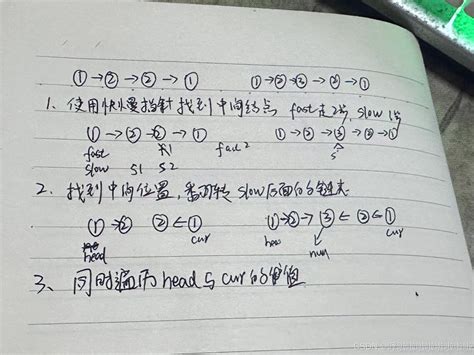 ①→②→②→① ①→②→③→②→①
1、使用快慢指针找到中间结点 fast走2步, slow 1步
①→②→②→① ①→②→③→②→①
fast fast2
slow S1 S2 s
2、找到中间位置,翻转slow后面的链表
①→② ②←① ①→②→③←②←①
head cur cur
3、同时遍历head与cur的值